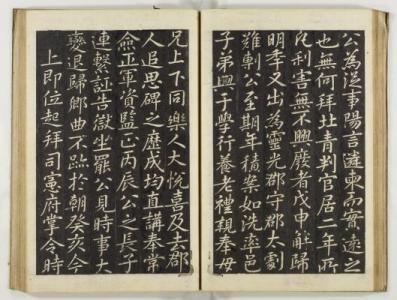 公為從事陽言違東而實遠之
也無何拜北青判官居二年所
凡利害無不興廢者戊申解歸
明年又出為靈光郡守郡太劇
難剸公至期年積案如洗選邑
子弟興于學行養老禮親奉母
兄上下同樂人大悅喜及去郡
人追思碑之歷成均直講奉常
僉正軍資監正丙辰公之長子
連繫誣告獄坐罷公見時事大
變退歸鄉曲不跡於朝癸亥今
上即位起拜司憲府掌令時